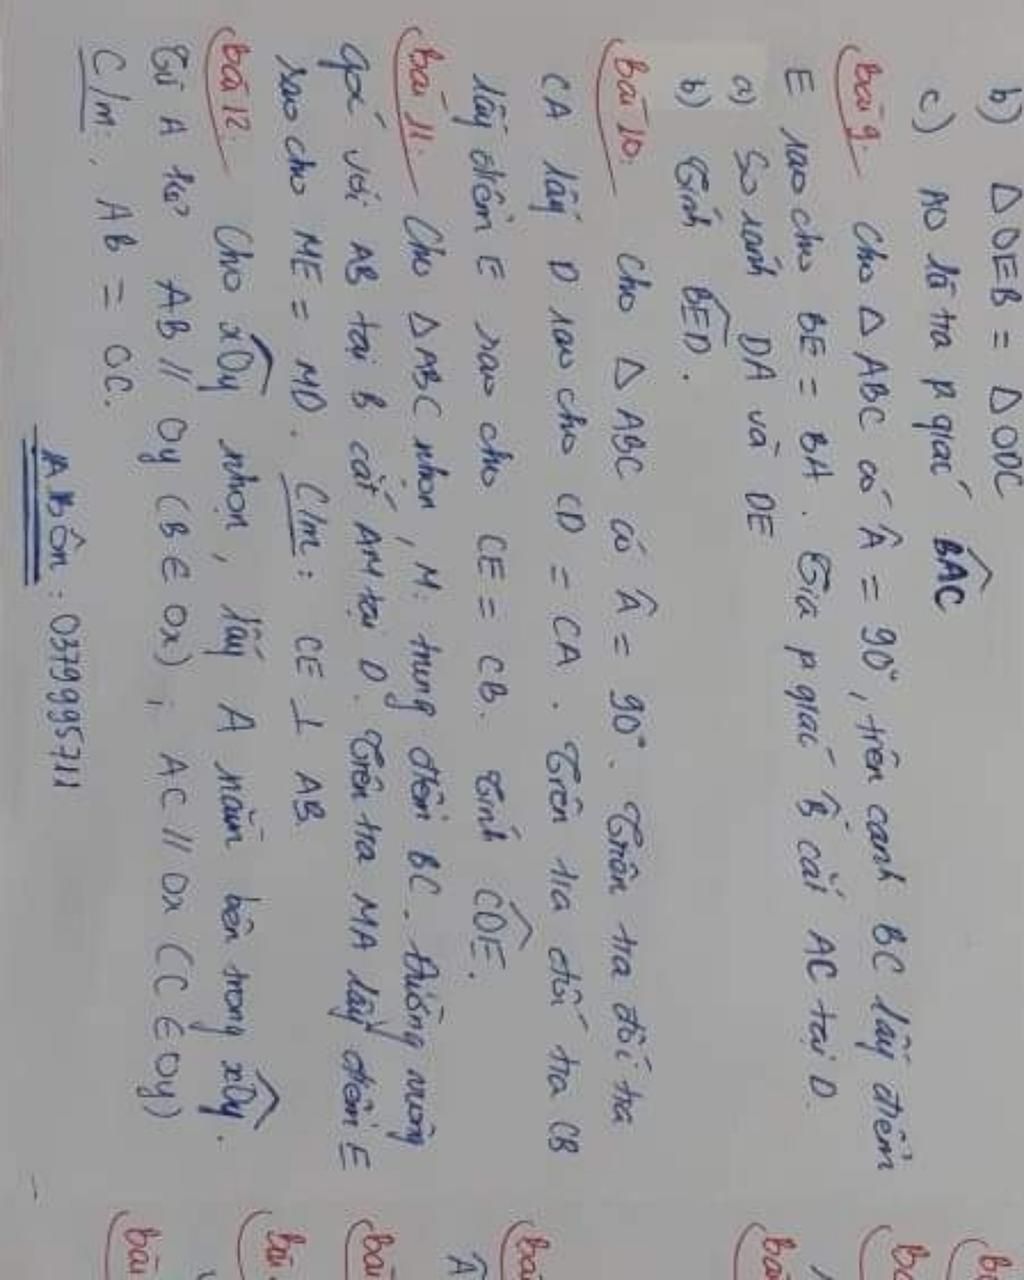 b) △OEB = △ODC
c) AO là tia p giác BAC
bài 9. Cho △ABC có Â = 90°, trên cạnh BC lấy điểm
E sao cho BE = BA. Tia p giác B̂ cắt AC tại D.
a) So sánh DA và DE
b) Tính BED.
Bài 10. Cho △ABC có Â = 90°. Trên tia đối tia
CA lấy D sao cho CD = CA. Trên tia đối tia CB
lấy điểm E sao cho CE = CB. Tính CDE.
bài 11. Cho △ABC nhọn, M: trung điểm BC. Đường vuông
góc với AB tại B cắt AM tại D. Trên tia MA lấy điểm E
sao cho ME = MD. C/m: CE ⊥ AB.
bài 12. Cho xOy nhọn, lấy A nằm bên trong xOy.
Từ A kẻ AB // Oy (B ∈ Ox); AC // Ox (C ∈ Oy)
C/m. AB = OC.
A Bôn: 0379995711
bài
bài
bài
bài
Â
bài
bài